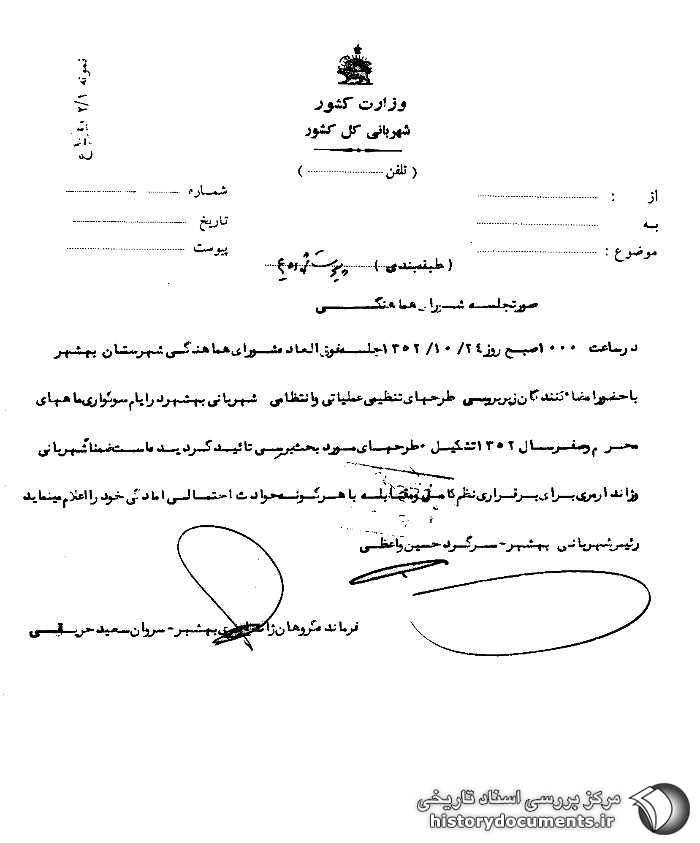 وزارت کشور
شهربانی کل کشور
( تلفن .................. )
شماره
تاریخ
پیوست
از :
به
موضوع :
( طبقه‌بندی )
صورتجلسه شورای هماهنگی
در ساعت ۱۰۰۰ صبح روز ۲۴ /۱۰ /۱۳۵۲ جلسه فوق العاده شورای هماهنگی شهرستان بهشهر
با حضور امضا کنندگان زیر بررسی طرحهای تنظیمی عملیاتی و انتظامی شهربانی بهشهر در ایام سوگواری ماههای
محرم و صفر سال ۱۳۵۲ تشکیل ۰ طرحهای مورد بحث بررسی تائید گردیده است ضمنا شهربانی
و ژاندارمری برای برقراری نظم کامل و مقابله با هرگونه حوادث احتمالی امادگی خود را اعلام مینماید
رئیس شهربانی بهشهر - سرگرد حسین واعظی
فرمانده گروهان ژاندارمری بهشهر - سروان سعید حریقی
مرکز بررسی اسناد تاریخی
historydocuments.ir